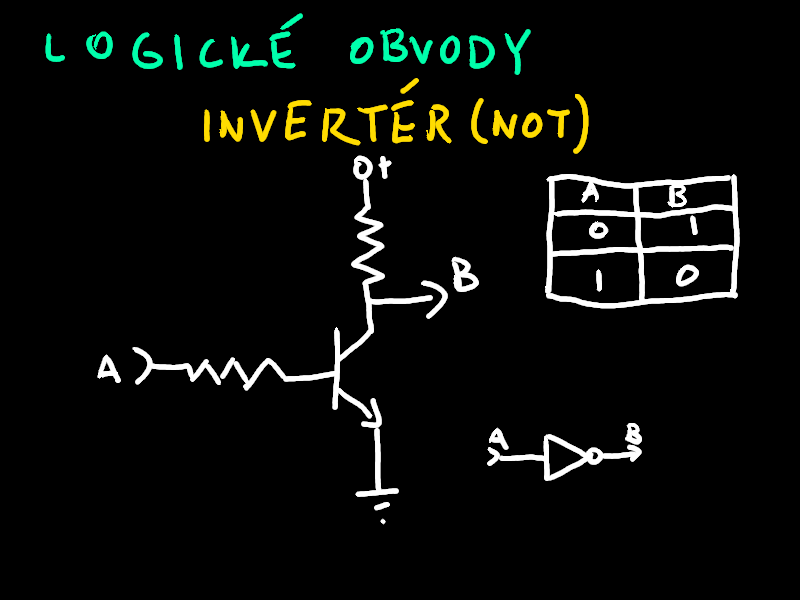 LOGICKÉ OBVODY
INVERTÉR (NOT)
+
A B
0 1
1 0
B
A
A B